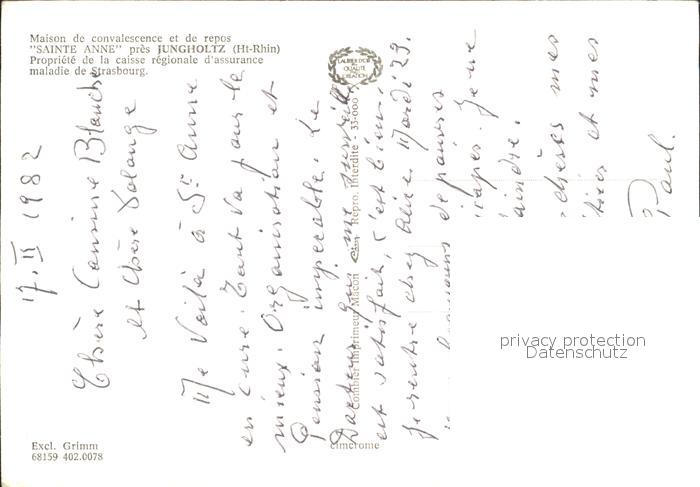 Maison de convalescence et de repos
"SAINTE ANNE" près JUNGHOLTZ (Ht-Rhin)
Propriété de la caisse régionale d'assurance
maladie de Strasbourg.
LAURIER D'OR
QUALITÉ
CRÉATION
Combier Imprimeur Macon Cim Repro. Interdite - 33-000
17. II 1982
Chère Cousine Blanche
et Chère Solange
Me voilà à Ste Anne
en cure. Tout va pour le
mieux. Organisation et
Pension impecable. Le
Docteur qui me
est satisfait, c'est bien.
Je rentre chez Mardi 23.
de pauvres
Je ne
chères mes
et mes
Paul.
privacy protection
Datenschutz
Excl. Grimm
68159 402.0078
cimcrome